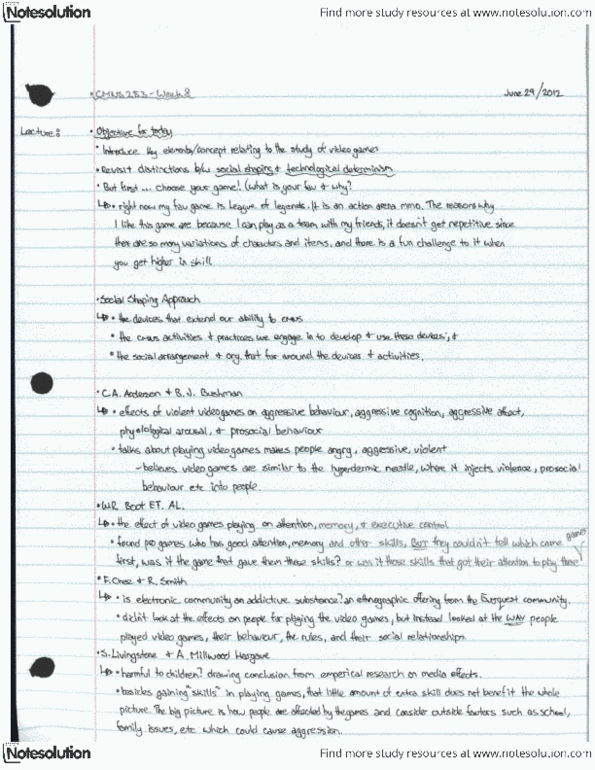 Notesolution
Find more study resources at www.notesolution.com
• CMNS 253 - Week 8
June 29/2012
Lecture:
• Objective for today
• Introduce key elements/concept relating to the study of video games
• Revisit distinctions b/w social shaping & technological determinism
• But first ... choose your game! (what is your fav & why?
↳ • right now my fav game is League of legends. It is an action arena mmo. The reasons why
I like this game are because I can play as a team with my friends, it doesn't get repetitive since
there are so many variations of characters and items, and there is a fun challenge to it when
you get higher in skill
• Social Shaping Approach
↳ • the devices that extend our ability to cmns
• the cmns activities & practices we engage in to develop & use these devices; &
• the social arrangement & org. that for around the devices & activities.
• C.A. Anderson & B. J. Bushman
↳ • effects of violent videogames on aggressive behaviour, aggressive cognition, aggressive affect,
physiological arousal, & prosocial behaviour
• talks about playing video games makes people angry, aggressive, violent
- believes video games are similar to the hyperdermic needle, where it injects, violence, prosocial
behaviour etc into people.
• W.R. Boot ET. AL.
↳ • the effect of video games playing on attention, memory, & executive control
• found pro games who has good attention, memory and other skills, BUT they couldn't tell which came
first, was it the game that gave them those skills? or was it those skills that got their attention to play those games
• F. Chee & R. Smith
↳ • is electronic community an addictive substance? an ethnographic offering from the Everquest community.
• didn't look at the effects on people for playing the video games, but instead looked at the WAY people
played video games, their behaviour, the rules, and their social relationships.
• S. Livingstone & A. Millwood Hargrave
↳ • harmful to children? drawing conclusion from emperical research on media effects.
• besides gaining "skills" in playing games, that little amount of extra skill does not benefit the whole
picture. The big picture is how people are affected by the games and consider outside factors such as school,
family issues, etc which could cause aggression.
Notesolution
Find more study resources at www.notesolution.com